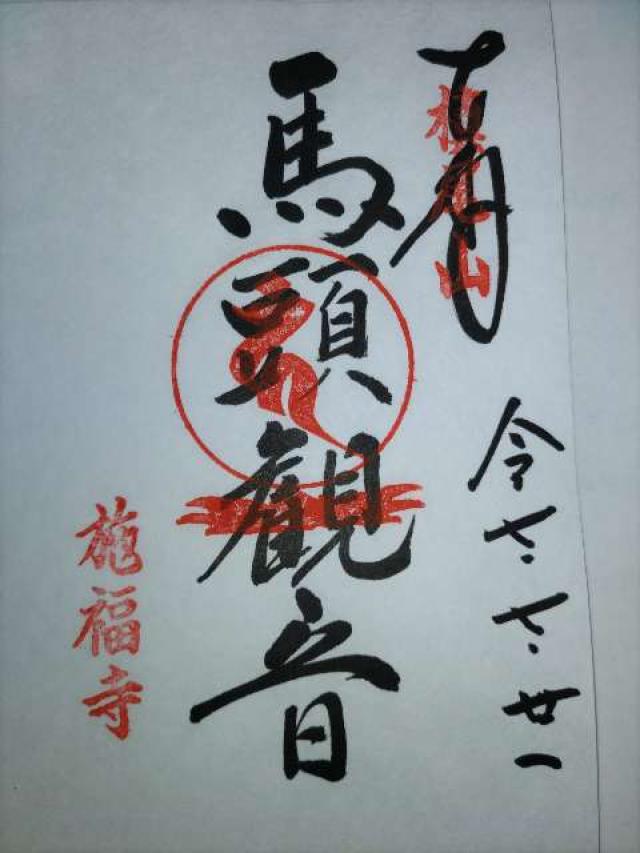 奉拝
槇尾山
令七.七.廿一
馬頭観音
施福寺